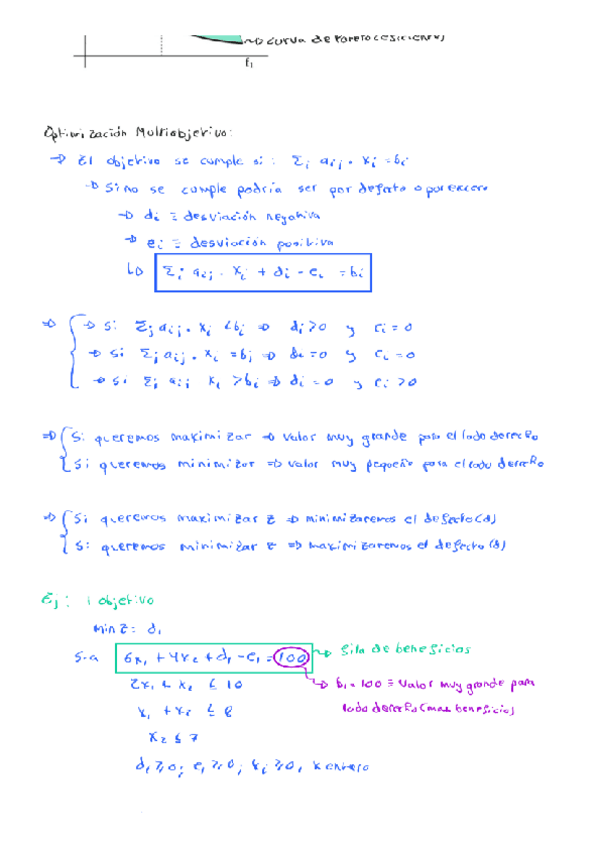 ~D curva de Pareto (eficiente)
f1
Optimización Multiobjetivo:
→ El objetivo se cumple si: Σj aij · xi = bi
→ Si no se cumple podría ser por defecto o por exceso
→ di ≡ desviación negativa
→ ei ≡ desviación positiva
↳ Σj aij · xi + di - ei = bi
⇒ → Si Σj aij · xi < bi ⇒ di > 0 y ei = 0
→ Si Σj aij · xi = bi ⇒ di = 0 y ei = 0
→ Si Σj aij xi > bi ⇒ di = 0 y ei > 0
⇒ Si queremos maximizar → valor muy grande para el lado derecho
Si queremos minimizar ⇒ valor muy pequeño para el lado derecho
⇒ Si queremos maximizar z ⇒ minimizaremos el defecto (d)
Si queremos minimizar z ⇒ maximizaremos el defecto (d)
Ej: 1 objetivo
min z = d1
s.a 6x1 + 4x2 + d1 - e1 = 100 → fila de beneficios
2x1 + x2 ≤ 10 → b1 = 100 ≡ valor muy grande para
x1 + x2 ≤ 8 lado derecho (max beneficios)
x2 ≤ 7
d1 ≥ 0; e1 ≥ 0; xi ≥ 0, x entero